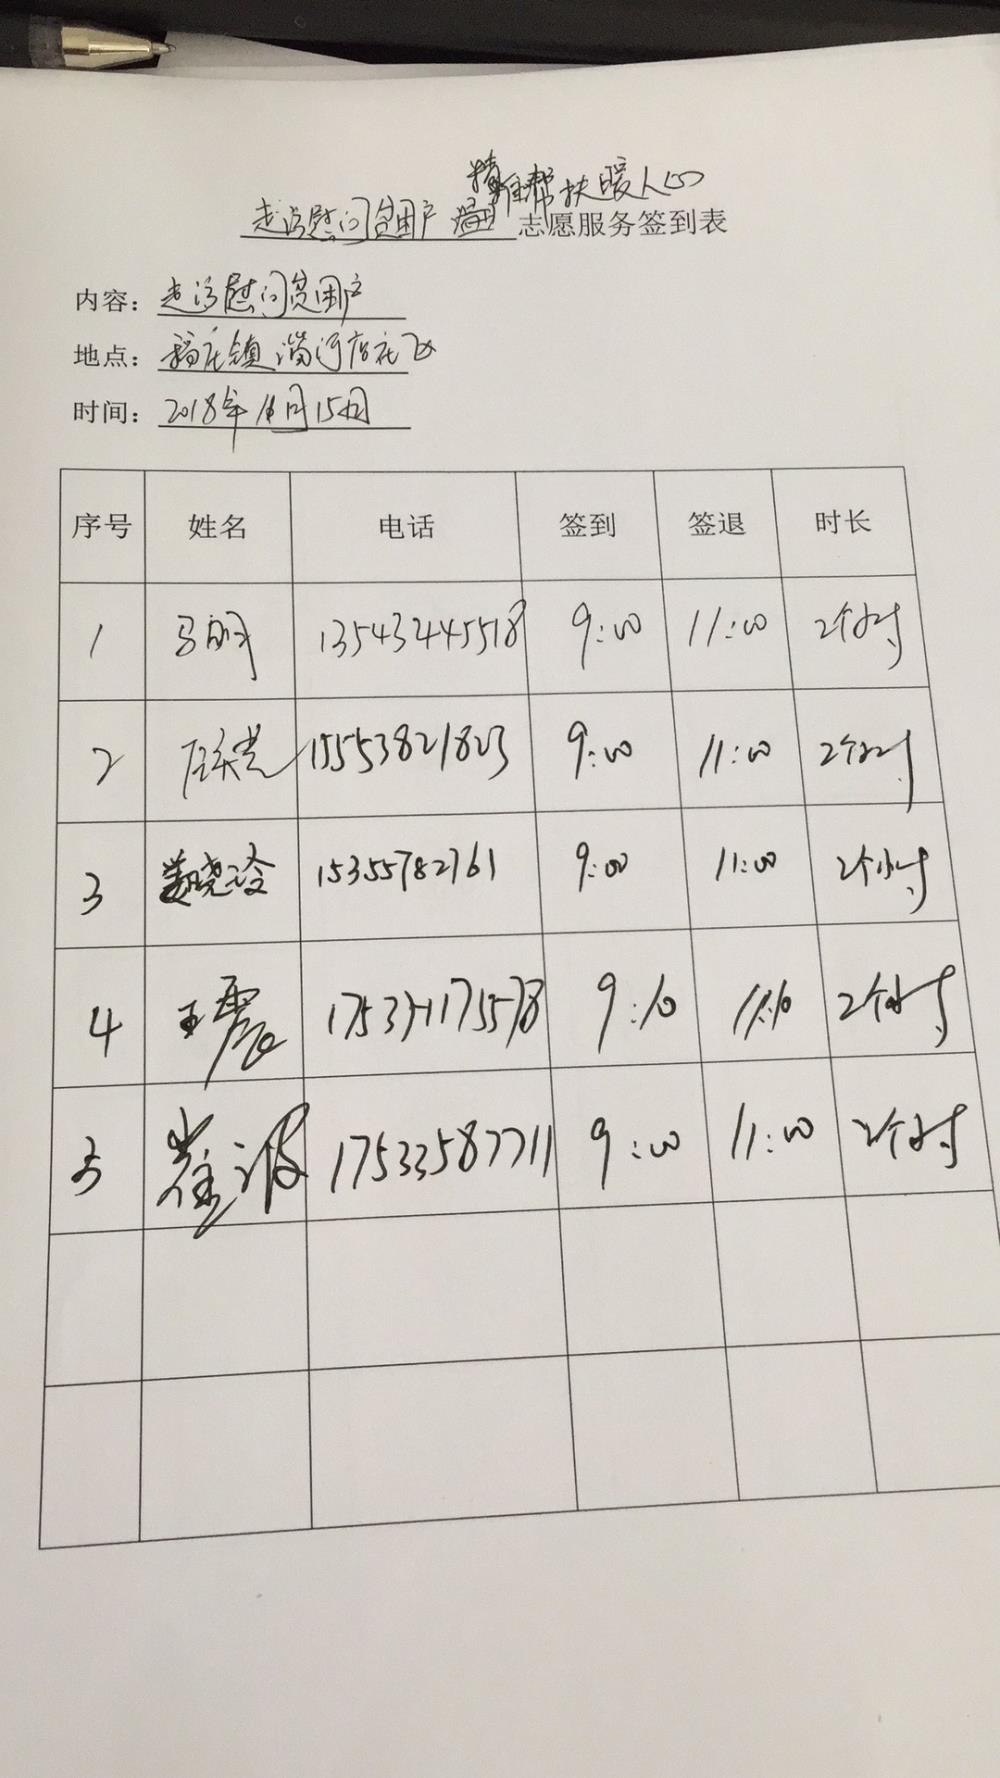 精准帮扶暖人心
走访慰问贫困户 志愿服务签到表
内容：走访慰问贫困户
地点：稻庄镇淄河店社区
时间：2018年11月15日
序号 姓名 电话 签到 签退 时长
1 马明 135432445518 9:00 11:00 2个小时
2 15553821823 9:00 11:00 2个小时
3 姜晓玲 15355782761 9:00 11:00 2个小时
4 王震 9:10 11:10 2个小时
5 崔波 17533587711 9:00 11:00 2个小时